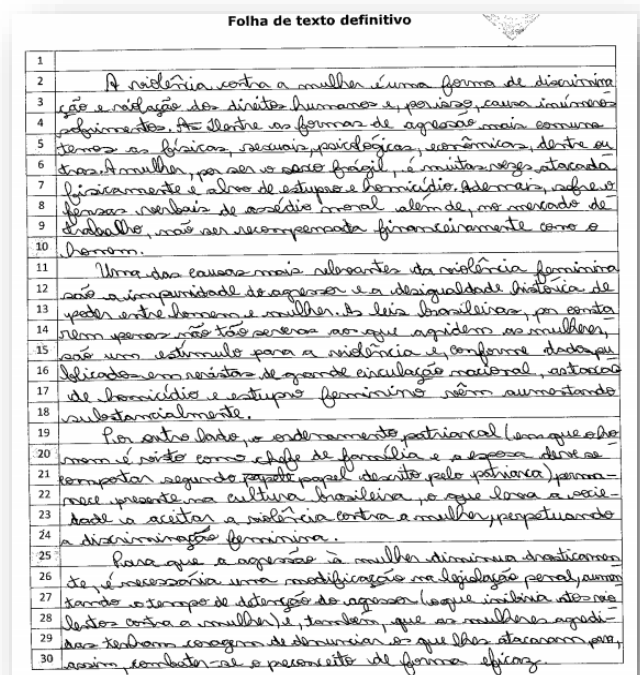 Folha de texto definitivo
1
2 A violência contra a mulher é uma forma de discrimina
3 ção e violação dos direitos humanos e, por isso, causa inúmeros
4 sofrimentos. As Dentre as formas de agressão mais comuns
5 temos as físicas, sexuais, psicológicas, econômicas, dentre ou
6 tras. A mulher, por ser o sexo frágil, é muitas vezes atacada
7 fisicamente e alvo de estupro e homicídio. Ademais, sofre o
8 fensas verbais de assédio moral além de, no mercado de
9 trabalho, não ser recompensada financeiramente como o
10 homem.
11 Uma das causas mais relevantes da violência feminina
12 são a impunidade do agressor e a desigualdade histórica de
13 poder entre homem e mulher. As leis brasileiras, por consta
14 rem penas não tão severas aos que agridem as mulheres,
15 são um estímulo para a violência e, conforme dados pu
16 blicados em revistas de grande circulação nacional, as taxas
17 de homicídio e estupro feminino vêm aumentando
18 substancialmente.
19 Por outro lado, o ordenamento patriarcal (em que o ho
20 mem é visto como chefe de família e a esposa deve se
21 comportar segundo papel descrito pelo patriarca), perma
22 nece presente na cultura brasileira, o que leva a socie
23 dade a aceitar a violência contra a mulher, perpetuando
24 a discriminação feminina.
25 Para que a agressão à mulher diminua drasticamen
26 te, é necessária uma modificação na legislação penal, aumen
27 tando o tempo de detenção do agressor (o que inibiria atos vio
28 lentos contra a mulher) e, também, que as mulheres agredi
29 das tenham coragem de denunciar os que lhes atacaram para,
30 assim, combater-se o preconceito de forma eficaz.